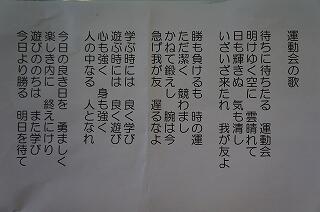 運動会の歌
待ちに待ちたる　運動会
明けゆく空に　雲晴れて
日も輝きぬ　気も清し
いざいざ来たれ　我が友よ
勝も負けるも　時の運
ただ潔く　競わまし
かねて鍛えし　腕は今
急げ我が友　遅るなよ
学ぶ時には　良く学び
遊ぶ時には　良く遊び
心も強く　身も強く
人の中なる　人となれ
今日の良き日を　勇ましく
楽しき内に　終えにけり
遊びののちは　また学び
今日より勝る　明日を待て